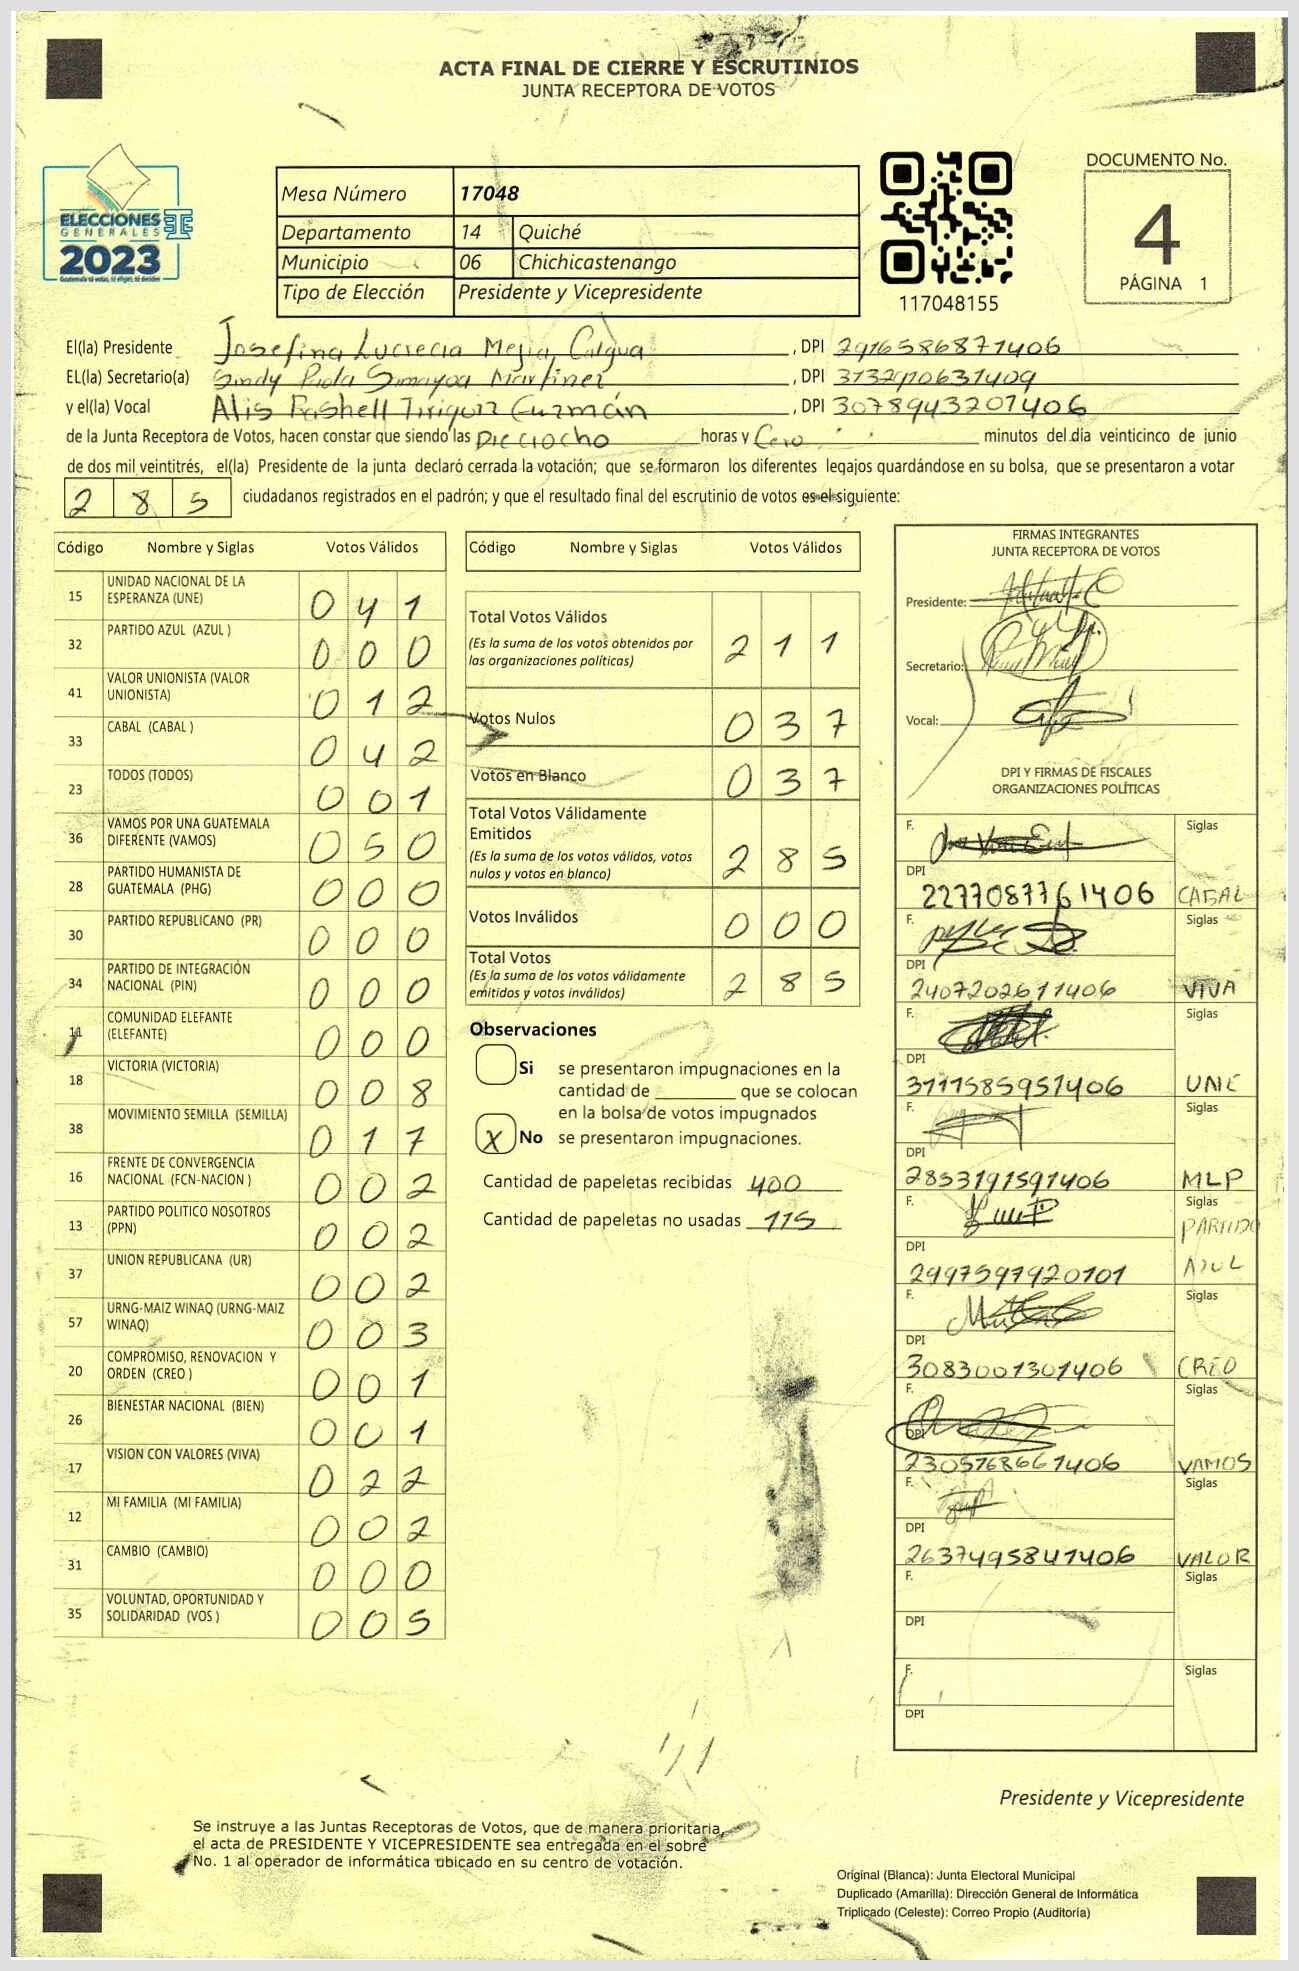 ACTA FINAL DE CIERRE Y ESCRUTINIOS
JUNTA RECEPTORA DE VOTOS
ELECCIONES
GENERALES
2023
Mesa Número 17048
Departamento 14 Quiché
Municipio 06 Chichicastenango
Tipo de Elección Presidente y Vicepresidente
117048155
DOCUMENTO No.
4
PÁGINA 1
El(la) Presidente Josefina Lucrecia Mejia Calgua, DPI 2916586871406
EL(la) Secretario(a) Sindy Paola Simayoa Martinez, DPI
y el(la) Vocal Alis Rashell Guzmán, DPI 3078943201406
de la Junta Receptora de Votos, hacen constar que siendo las Dieciocho horas y Cero minutos del día veinticinco de junio
de dos mil veintitrés, el(la) Presidente de la junta declaró cerrada la votación; que se formaron los diferentes legajos quardándose en su bolsa, que se presentaron a votar
285 ciudadanos registrados en el padrón; y que el resultado final del escrutinio de votos es el siguiente:
Código Nombre y Siglas Votos Válidos
15 UNIDAD NACIONAL DE LA ESPERANZA (UNE) 041
32 PARTIDO AZUL (AZUL ) 000
41 VALOR UNIONISTA (VALOR UNIONISTA) 012
33 CABAL (CABAL ) 042
23 TODOS (TODOS) 001
36 VAMOS POR UNA GUATEMALA DIFERENTE (VAMOS) 050
28 PARTIDO HUMANISTA DE GUATEMALA (PHG) 000
30 PARTIDO REPUBLICANO (PR) 000
34 PARTIDO DE INTEGRACIÓN NACIONAL (PIN) 000
11 COMUNIDAD ELEFANTE (ELEFANTE) 000
18 VICTORIA (VICTORIA) 008
38 MOVIMIENTO SEMILLA (SEMILLA) 017
16 FRENTE DE CONVERGENCIA NACIONAL (FCN-NACION ) 002
13 PARTIDO POLITICO NOSOTROS (PPN) 002
37 UNION REPUBLICANA (UR) 002
57 URNG-MAIZ WINAQ (URNG-MAIZ WINAQ) 003
20 COMPROMISO, RENOVACION Y ORDEN (CREO ) 001
26 BIENESTAR NACIONAL (BIEN) 001
17 VISION CON VALORES (VIVA) 022
12 MI FAMILIA (MI FAMILIA) 002
31 CAMBIO (CAMBIO) 000
35 VOLUNTAD, OPORTUNIDAD Y SOLIDARIDAD (VOS ) 005
Código Nombre y Siglas Votos Válidos
Total Votos Válidos 211
(Es la suma de los votos obtenidos por las organizaciones políticas)
Votos Nulos 037
Votos en Blanco 037
Total Votos Válidamente Emitidos 285
(Es la suma de los votos válidos, votos nulos y votos en blanco)
Votos Inválidos 000
Total Votos 285
(Es la suma de los votos válidamente emitidos y votos inválidos)
Observaciones
Si se presentaron impugnaciones en la
cantidad de ________ que se colocan
en la bolsa de votos impugnados
X No se presentaron impugnaciones.
Cantidad de papeletas recibidas 400
Cantidad de papeletas no usadas 115
FIRMAS INTEGRANTES
JUNTA RECEPTORA DE VOTOS
Presidente:
Secretario:
Vocal:
DPI Y FIRMAS DE FISCALES
ORGANIZACIONES POLÍTICAS
F. Siglas
DPI
2277087761406 CABAL
F. Siglas
DPI
2407202611406 VIVA
F. Siglas
DPI
3111585951406 UNE
F. Siglas
DPI
2853191591406 MLP
F. Siglas
PARTIDO
DPI
2997597920101 AZUL
F. Siglas
DPI
3083001301406 CREO
F. Siglas
DPI
2305768661406 VAMOS
F. Siglas
DPI
2637495841406 VALOR
F. Siglas
DPI
F. Siglas
DPI
Presidente y Vicepresidente
Se instruye a las Juntas Receptoras de Votos, que de manera prioritaria,
el acta de PRESIDENTE Y VICEPRESIDENTE sea entregada en el sobre
No. 1 al operador de informática ubicado en su centro de votación.
Original (Blanca): Junta Electoral Municipal
Duplicado (Amarilla): Dirección General de Informática
Triplicado (Celeste): Correo Propio (Auditoría)